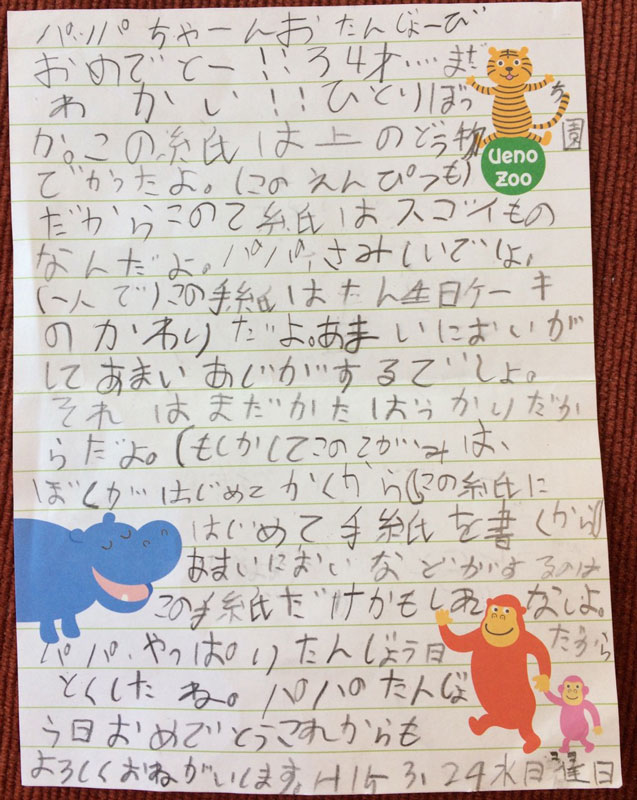 パパちゃーんおたんじょーび
おめでとー!!34才....まだ
わかい!!ひとりぼっち
か。この紙は上のどう物園
でかったよ。(このえんぴつも)
Ueno
Zoo
だからこのて紙はスゴイもの
なんだよ。パパ、さみしいでしょ。
(一人で)この手紙はたん生日ケーキ
のかわりだよ。あまいにおいが
してあまいあじがするでしょ。
それはまだかたばっかりだか
らだよ。(もしかしてこのてがみは、
ぼくがはじめてかくから(この紙に
はじめて手紙を書くから)
あまいにおいなどがするのは
この手紙だけかもしれなしよ。
パパ、やっぱりたんじょう日
だから
とくしたね。パパのたんじょ
う日おめでとうこれからも
よろしくおねがいします。H15 3, 24水曜日